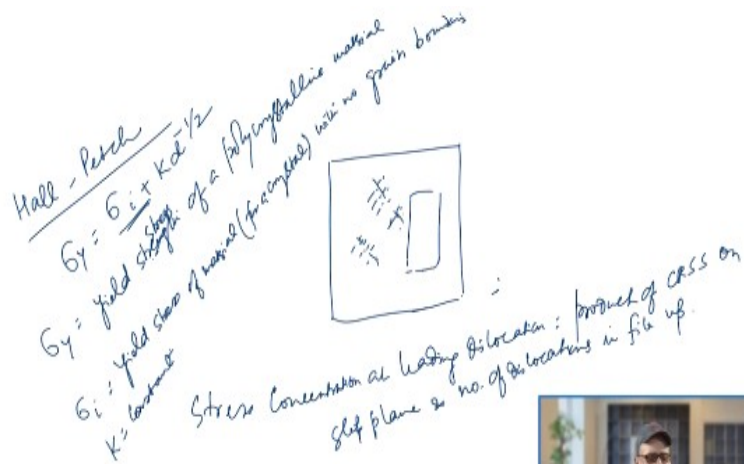 Hall - Petch
σy = σi + K d^-1/2
σy = yield stress strength of a polycrystalline material
σi = yield stress of material (for a crystal) with no grain boundaries
K = constant
Stress Concentration at leading dislocation : product of CRSS on
slip plane no. of dislocations in pile up.